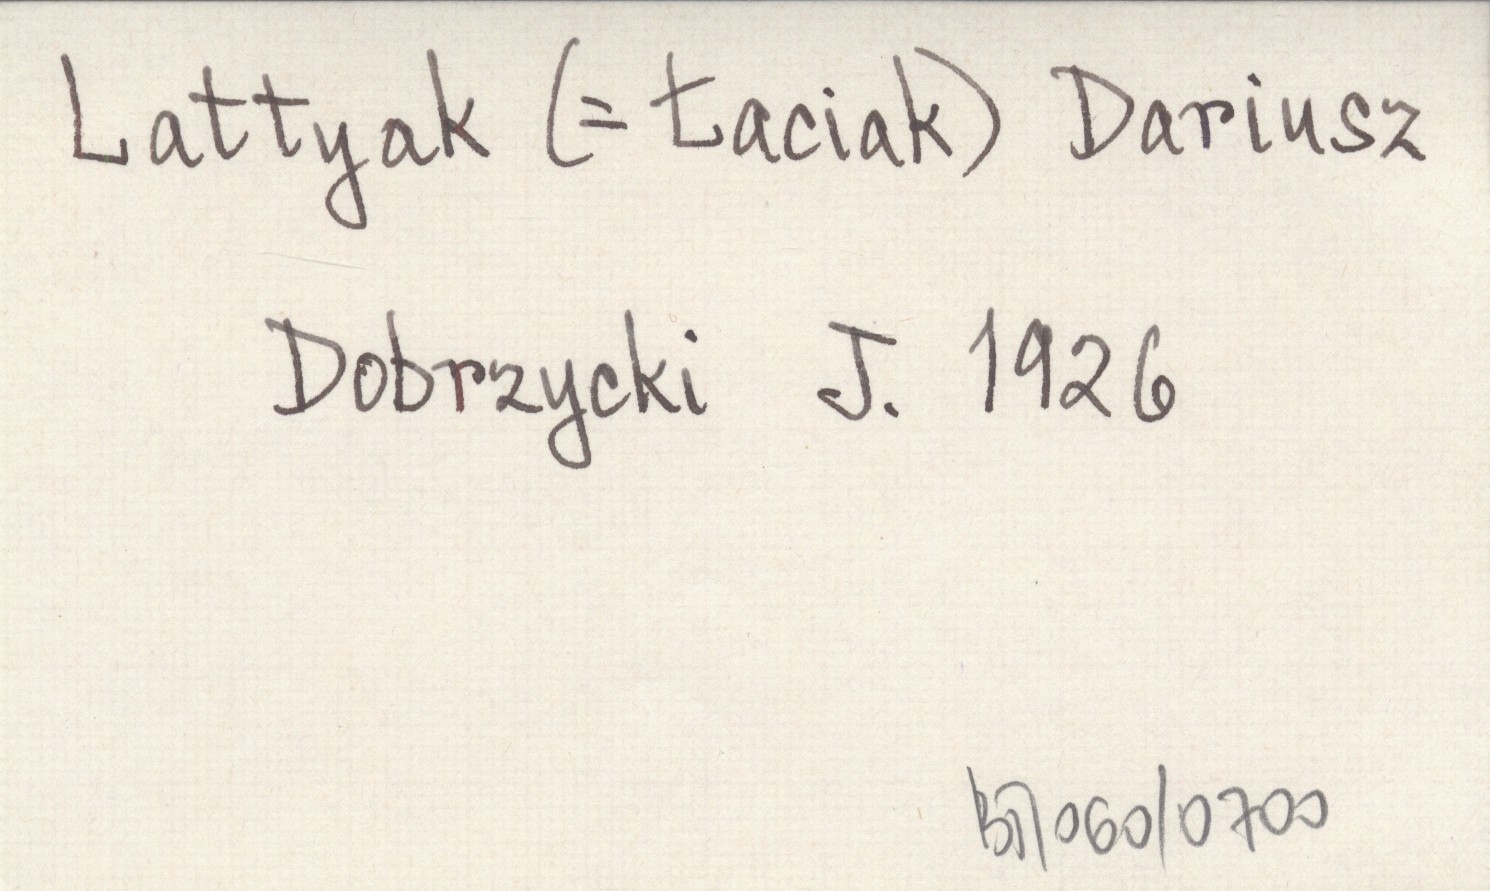 Lattyak (= Łaciak) Dariusz
Dobrzycki J. 1926
060/0700